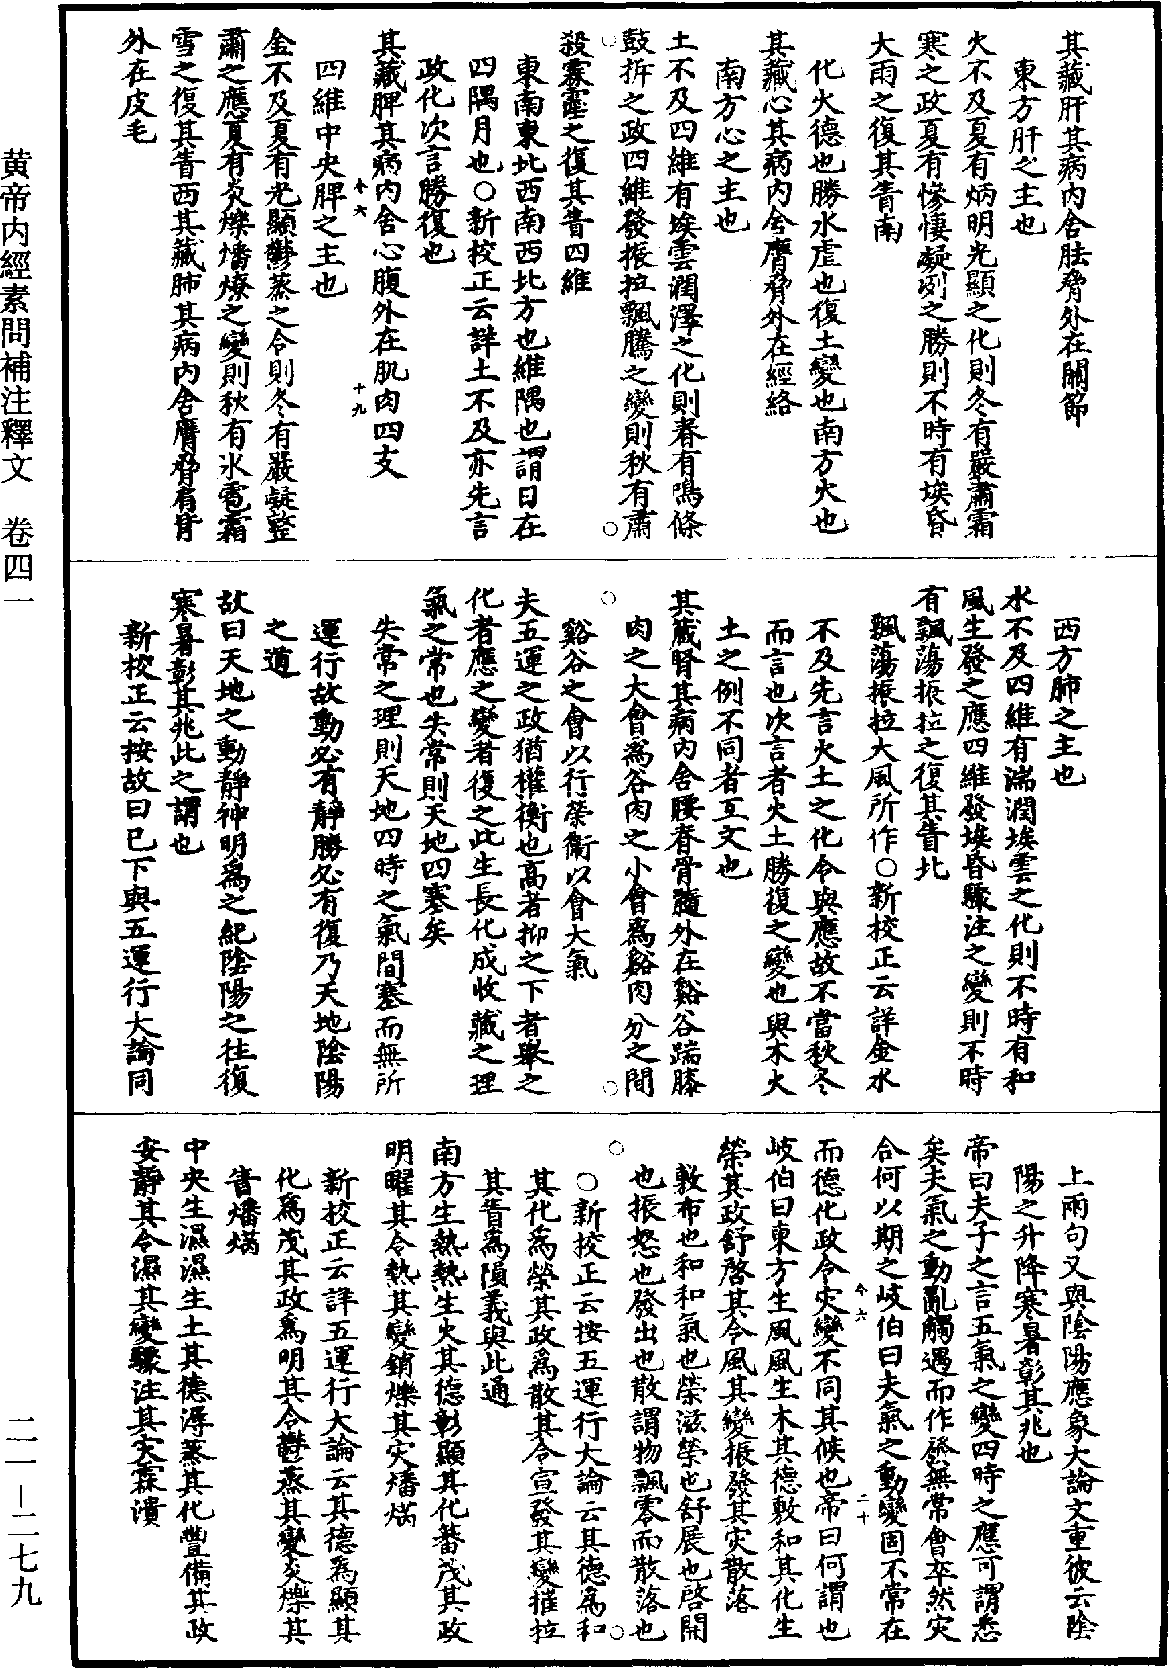 其藏肝其病內舍胠脅外在關節
東方肝之主也
火不及夏有炳明光顯之化則冬有嚴肅霜
寒之政夏有慘悽凝冽之勝則不時有埃昏
大雨之復其眚南
化火德也勝水虐也復土變也南方火也
其藏心其病內舍膺脅外在經絡
南方心之主也
土不及四維有埃雲潤澤之化則春有鳴條
鼓拆之政四維發振拉飄騰之變則秋有肅
殺霖霪之復其眚四維
東南東北西南西北方也維隅也謂日在
四隅月也○新校正云詳土不及亦先言
政化次言勝復也
其藏脾其病內舍心腹外在肌肉四支
四維中央脾之主也
金不及夏有光顯鬱蒸之令則冬有嚴凝整
肅之應夏有炎爍燔燎之變則秋有冰雹霜
雪之復其眚西其藏肺其病內舍膺脅肩背
外在皮毛
西方肺之主也
水不及四維有湍潤埃雲之化則不時有和
風生發之應四維發埃昏驟注之變則不時
有飄蕩振拉之復其眚北
飄蕩振拉大風所作○新校正云詳金水
不及先言火土之化令與應故不當秋冬
而言也次言者火土勝復之變也與木火
土之例不同者互文也
其藏腎其病內舍腰脊骨髓外在谿谷踹膝
肉之大會為谷肉之小會為谿肉分之間
谿谷之會以行榮衛以會大氣
夫五運之政猶權衡也高者抑之下者舉之
化者應之變者復之此生長化成收藏之理
氣之常也失常則天地四塞矣
失常之理則天地四時之氣間塞而無所
運行故動必有靜勝必有復乃天地陰陽
之道
故曰天地之動靜神明為之紀陰陽之往復
寒暑彰其兆此之謂也
新校正云按故曰已下與五運行大論同
上兩句又與陰陽應象大論文重彼云陰
陽之升降寒暑彰其兆也
帝曰夫子之言五氣之變四時之應可謂悉
矣夫氣之動亂觸遇而作發無常會卒然灾
合何以期之岐伯曰夫氣之動變固不常在
而德化政令灾變不同其候也帝曰何謂也
岐伯曰東方生風風生木其德敷和其化生
榮其政舒啓其令風其變振發其灾散落
敷布也和和氣也榮滋榮也舒展也啓開
也振怒也發出也散謂物飄零而散落也
○新校正云按五運行大論云其德為和
其化為榮其政為散其令宣發其變摧拉
其眚為隕義與此通
南方生熱熱生火其德彰顯其化蕃茂其政
明曜其令熱其變銷爍其灾燔焫
新校正云詳五運行大論云其德為顯其
化為茂其政為明其令鬱蒸其變炎爍其
眚燔焫
中央生濕濕生土其德溽蒸其化豐備其政
安靜其令濕其變驟注其灾霖潰
卷六
十九
卷六
二十
黄帝内經素問補注釋文　卷四一
二一—二七九